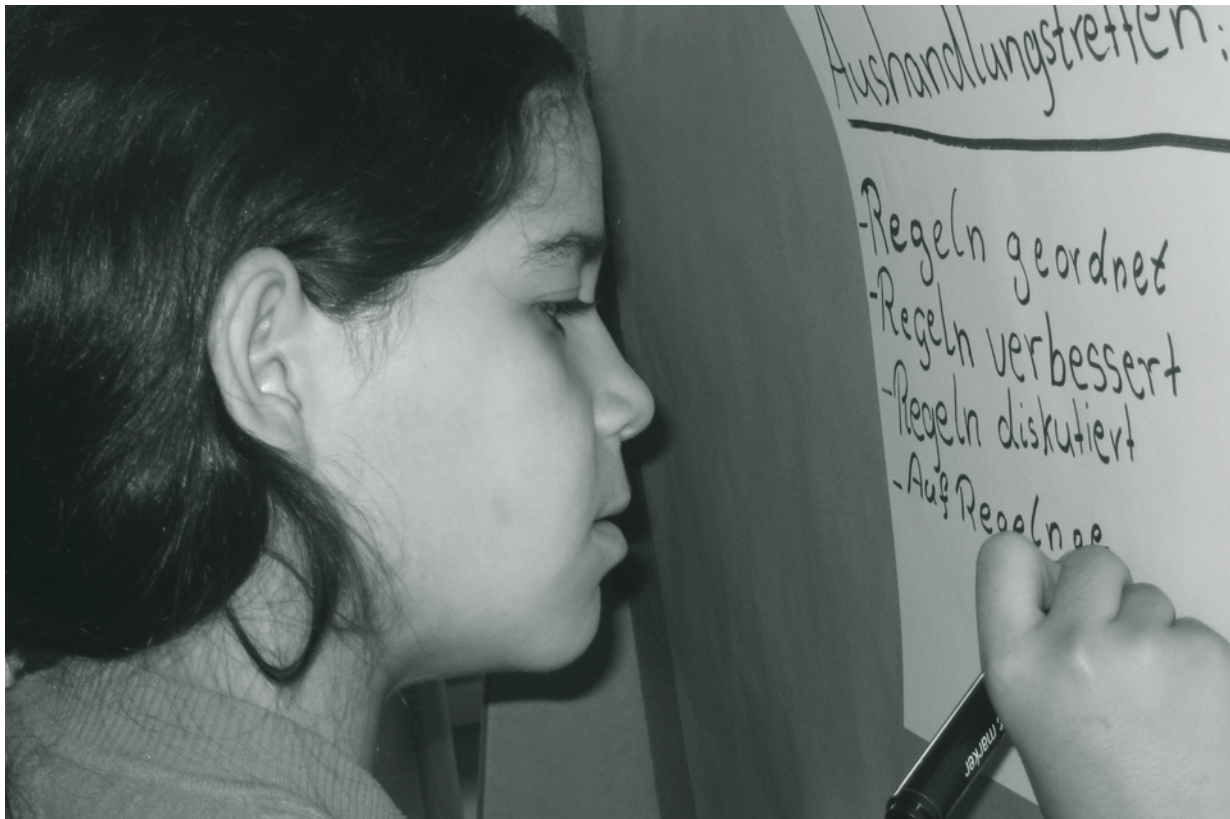 Aushandlungstreffen:
-Regeln geordnet
-Regeln verbessert
-Regeln diskutiert
-Auf Regeln ge
marker